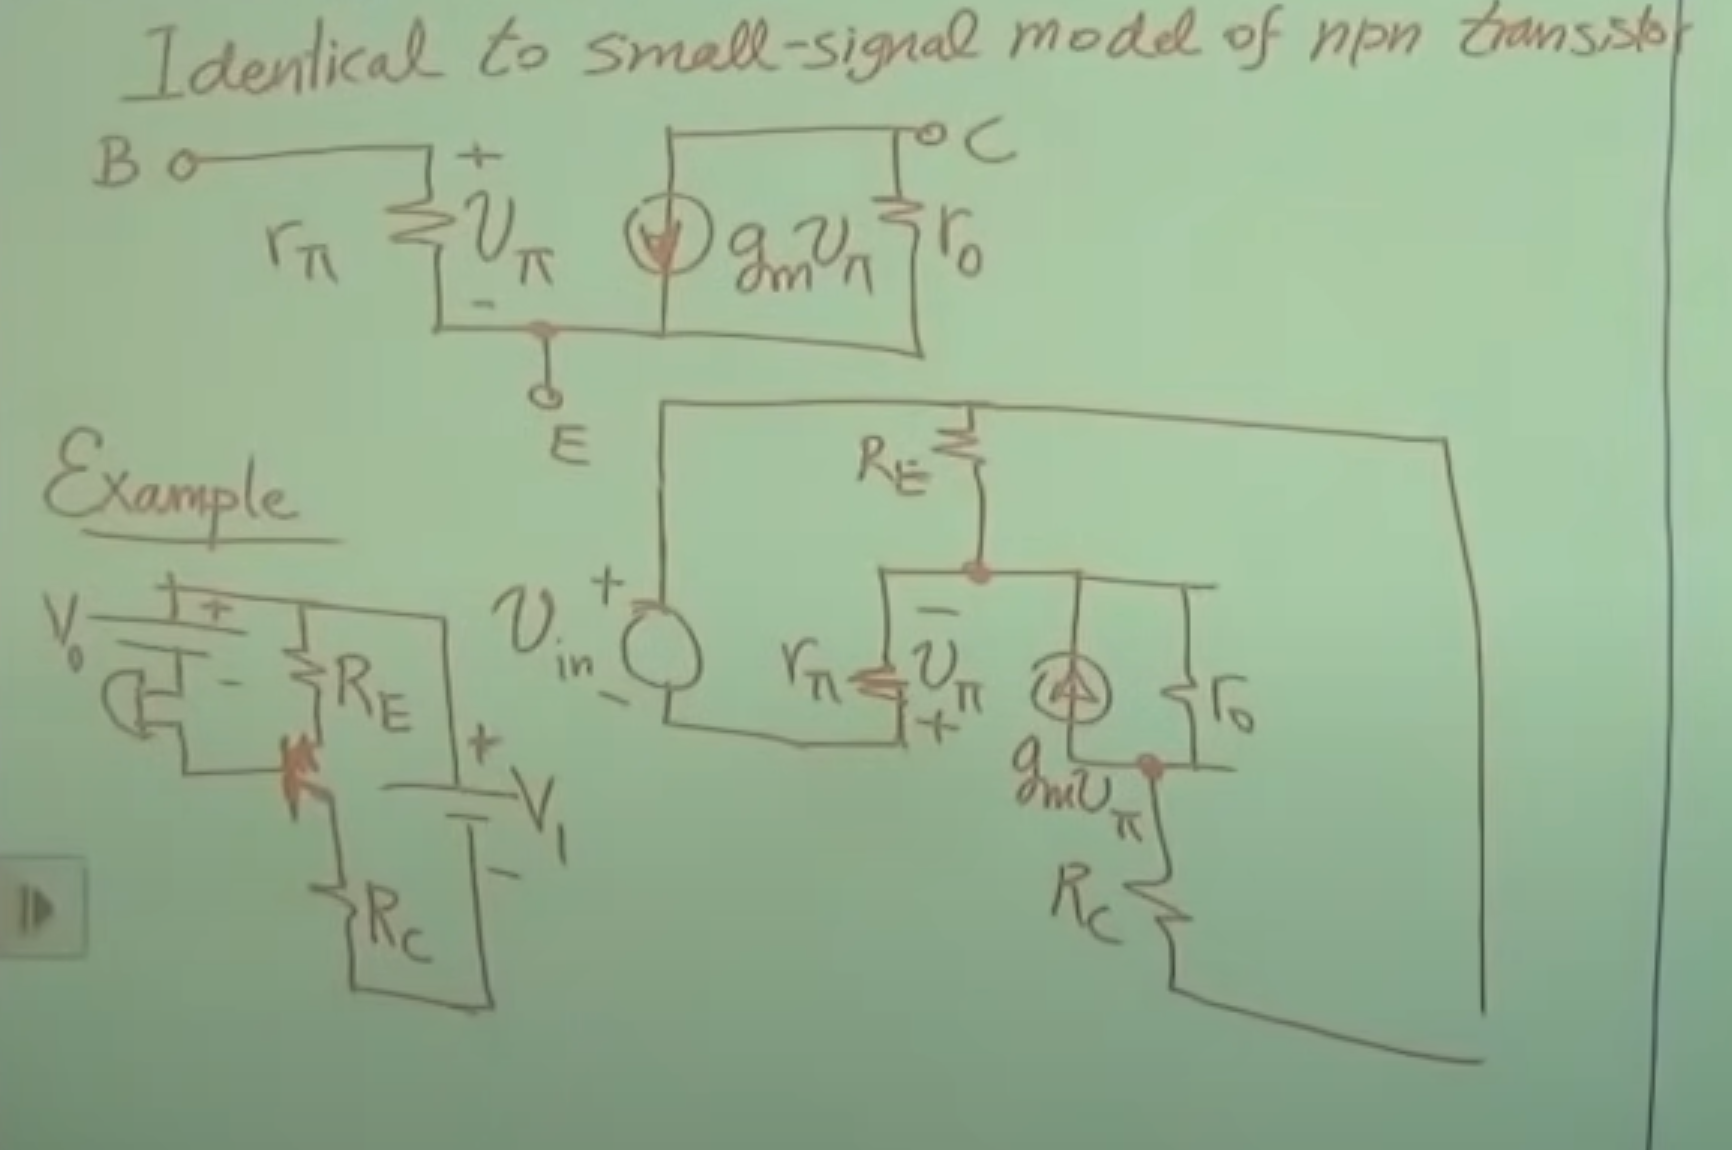 Identical to small-signal model of npn transistor
B
+
C
rπ
vπ
gmvπ
ro
-
E
Example
RE
V0
+
-
RE
+
V1
-
RC
vin
+
-
rπ
-
vπ
+
gmvπ
ro
RC